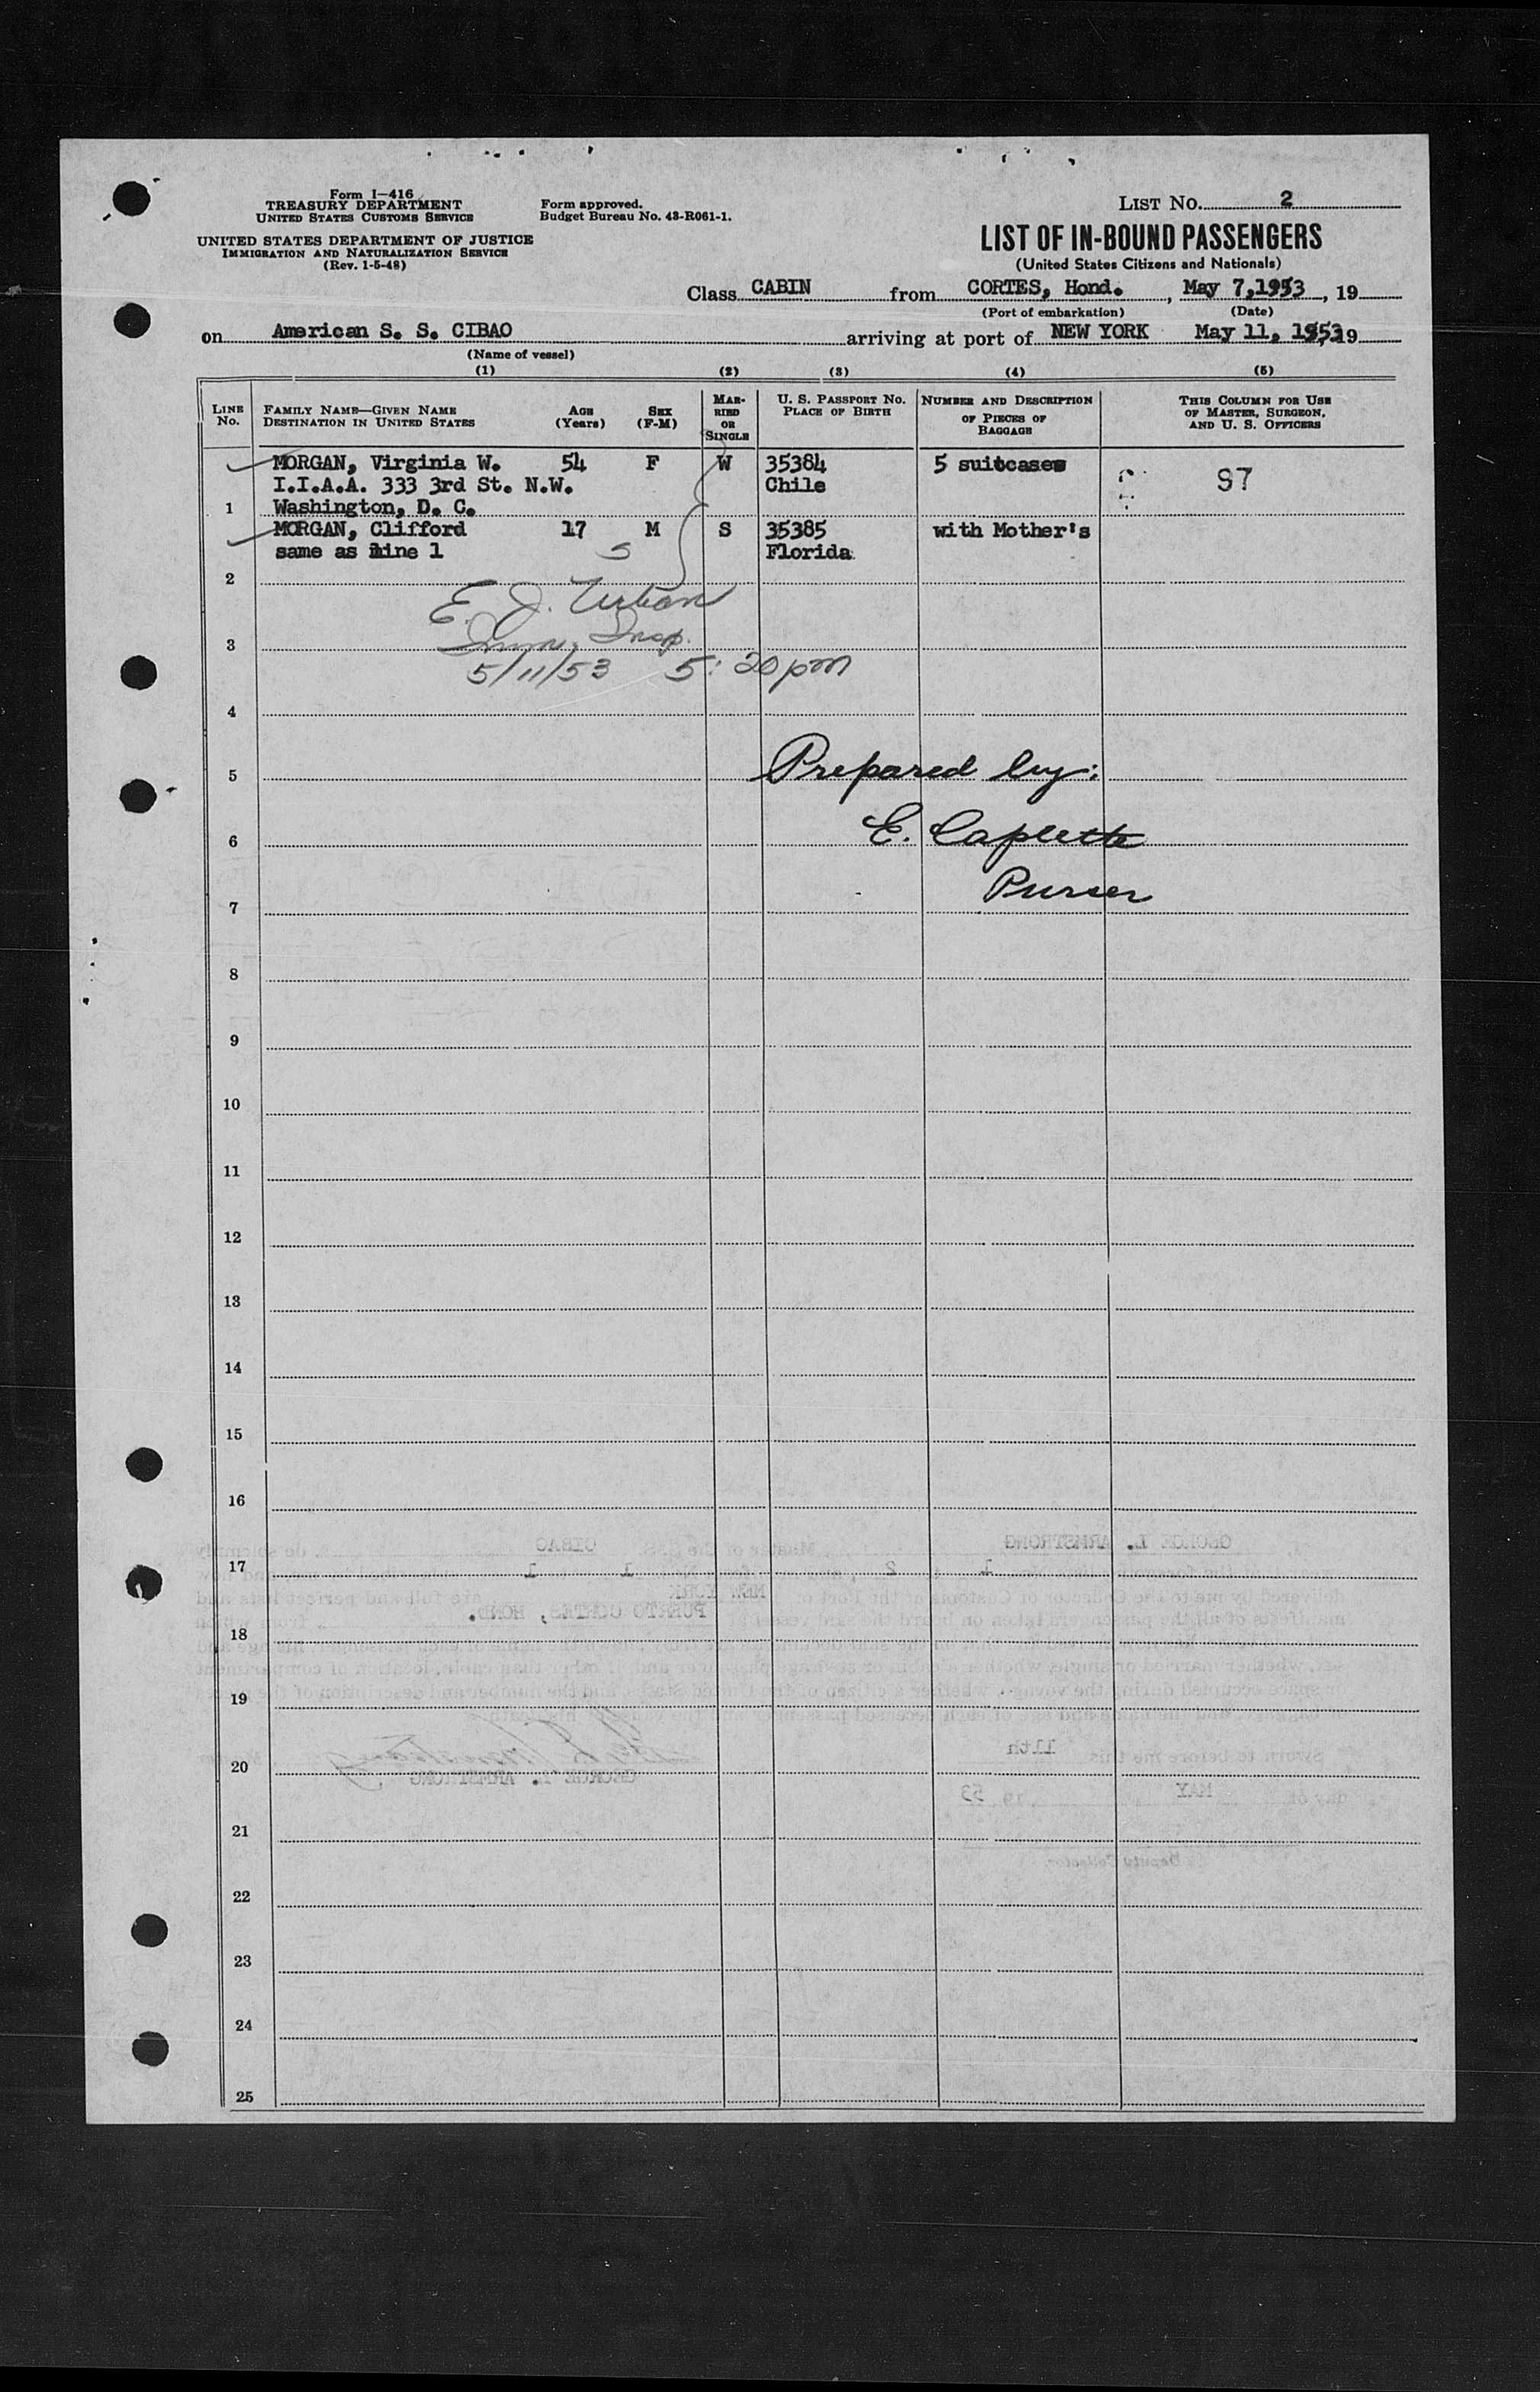 Form I-416
TREASURY DEPARTMENT
UNITED STATES CUSTOMS SERVICE
UNITED STATES DEPARTMENT OF JUSTICE
IMMIGRATION AND NATURALIZATION SERVICE
(Rev. 1-5-48)
Form approved.
Budget Bureau No. 43-R061-1.
LIST NO. 2
LIST OF IN-BOUND PASSENGERS
(United States Citizens and Nationals)
Class CABIN from CORTES, Hond., May 7,1953, 19
(Port of embarkation) (Date)
on American S. S. CIBAO arriving at port of NEW YORK May 11, 1953, 19
(Name of vessel)
(1) (2) (3) (4) (5)
LINE No. FAMILY NAME—GIVEN NAME DESTINATION IN UNITED STATES AGE (Years) SEX (F-M) MARRIED OR SINGLE U. S. PASSPORT NO. PLACE OF BIRTH NUMBER AND DESCRIPTION OF PIECES OF BAGGAGE THIS COLUMN FOR USE OF MASTER, SURGEON, AND U. S. OFFICERS
MORGAN, Virginia W. 54 F W 35384 5 suitcases
I.I.A.A. 333 3rd St. N.W. Chile 97
1 Washington, D. C.
MORGAN, Clifford 17 M S 35385 with Mother's
same as line 1 S Florida
2
E. J. Urban
3 Imm. Insp.
5/11/53 5:20pm
4
5 Prepared by:
6 E. Caplette
Purser
7
8
9
10
11
12
13
14
15
16
GEORGE L. ARMSTRONG Master of the CIBAO do solemnly
17 1 2 1 1
NEW YORK
PUERTO CORTES, HOND.
18
19
11th
20
GEORGE L. ARMSTRONG
day of MAY 19 53
21
Deputy Collector
22
23
24
25